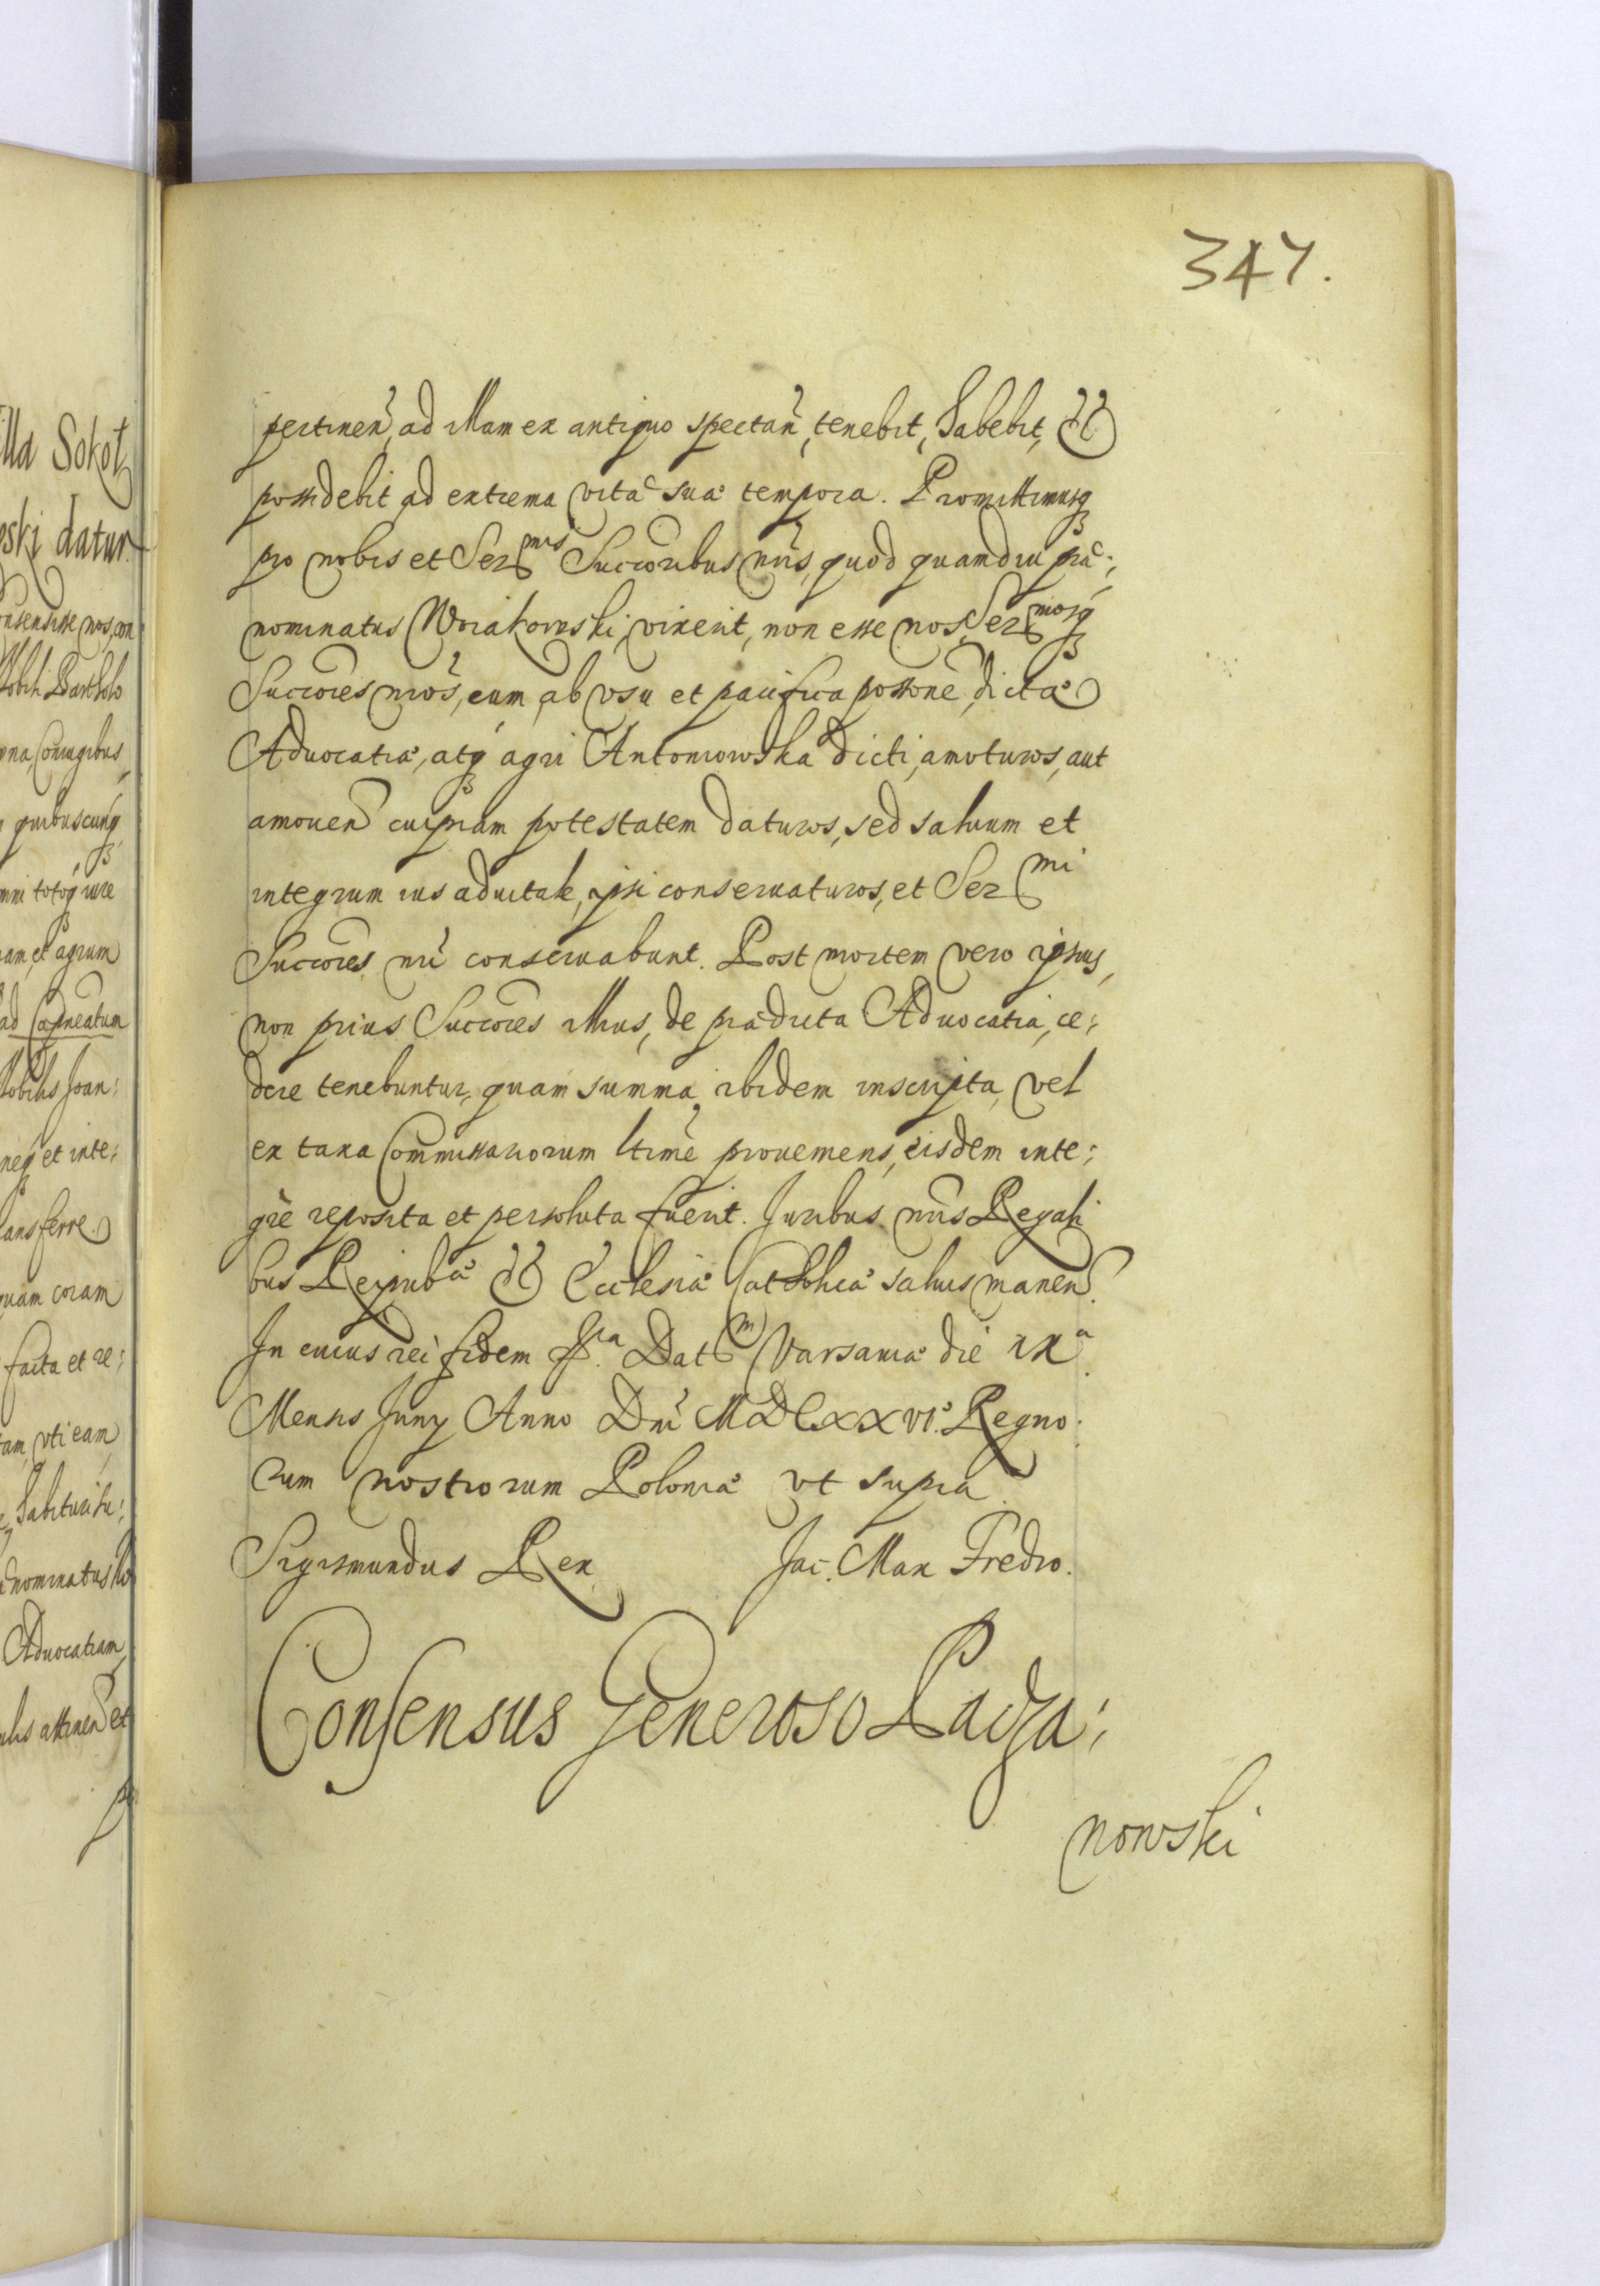 347.
pertineñ, ad illam ex antiquo spectañ, tenebit, habebit, et
possidebit ad extrema vitæ suæ tempora. Promittimusq
pro nobis et Ser<sup>mis</sup> Succoribus nris, quod quamdiu præ:
nominatus Woiakowski vixerit, non esse nos, Ser<sup>mosq</sup>
Succores nros, eum ab vsu et pacifica possone, dictæ
Aduocatiæ, atq agri Antoniowska dicti, amoturos, aut
amouen cuipiam potestatem daturos, sed saluum et
integrum ius aduitale, ipsi conseruaturos, et Ser<sup>mi</sup>
Succores nri conseruabunt. Post mortem vero ipsius,
non prius Succores illius, de prædicta Aduocatia, ce:
dere tenebuntur, quam summa ibidem inscripta, vel
ex taxa Commissariorum ltime proueniens, eisdem inte:
gre reposita et persoluta fuerit. Juribus nris Regali
bus Reipub<sup>æ</sup> et Ecclesiæ Catholicæ saluis manen.
In cuius rei fidem Dat<sup>m</sup> Varsauiæ die IX<sup>a</sup>
Mensis Juny Anno Dni MDCXXVI. Regno
rum nostrorum Poloniæ vt supra
Sigismundus Rex Jac. Max Fredro.
Consensus Generoso Ladza:
nowski
illa Sokoł
oski datur
onsensisse nos, con
Nobili Bartholo
Coniugibus
quibuscunq
omni totoq iure
et agrum
ad Capneatum
Nobilis Joan:
et inte:
ansferre
quam coram
facta et re:
vti eam
habituri
nominatus
Aduocatiam
attinen et